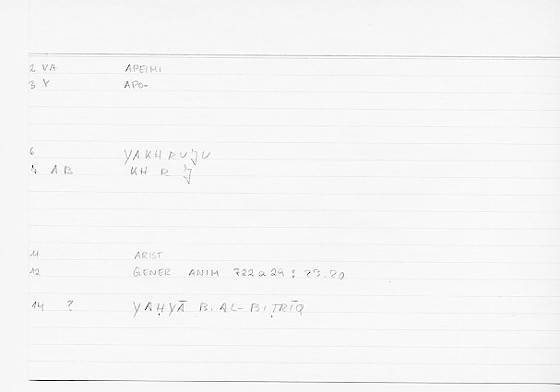 2 VA APEIMI
3 Y APO-
6 YAKHRUJU
AB KH R J
11 ARIST
12 GENER ANIM 722a29 : 23.20
14 ? YAḤYĀ B. AL-BIṬRĪQ